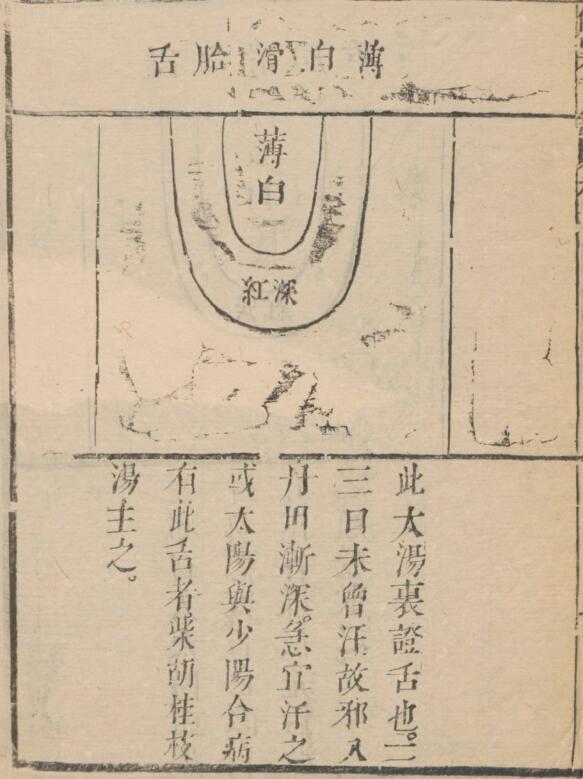 薄白滑胎舌
薄白
深紅
此太湯裏證舌也。二
三日未曾汗故邪入
丹田漸深。急宜汗之
或太陽與少陽合病
有此舌者柴胡桂枝
湯主之。